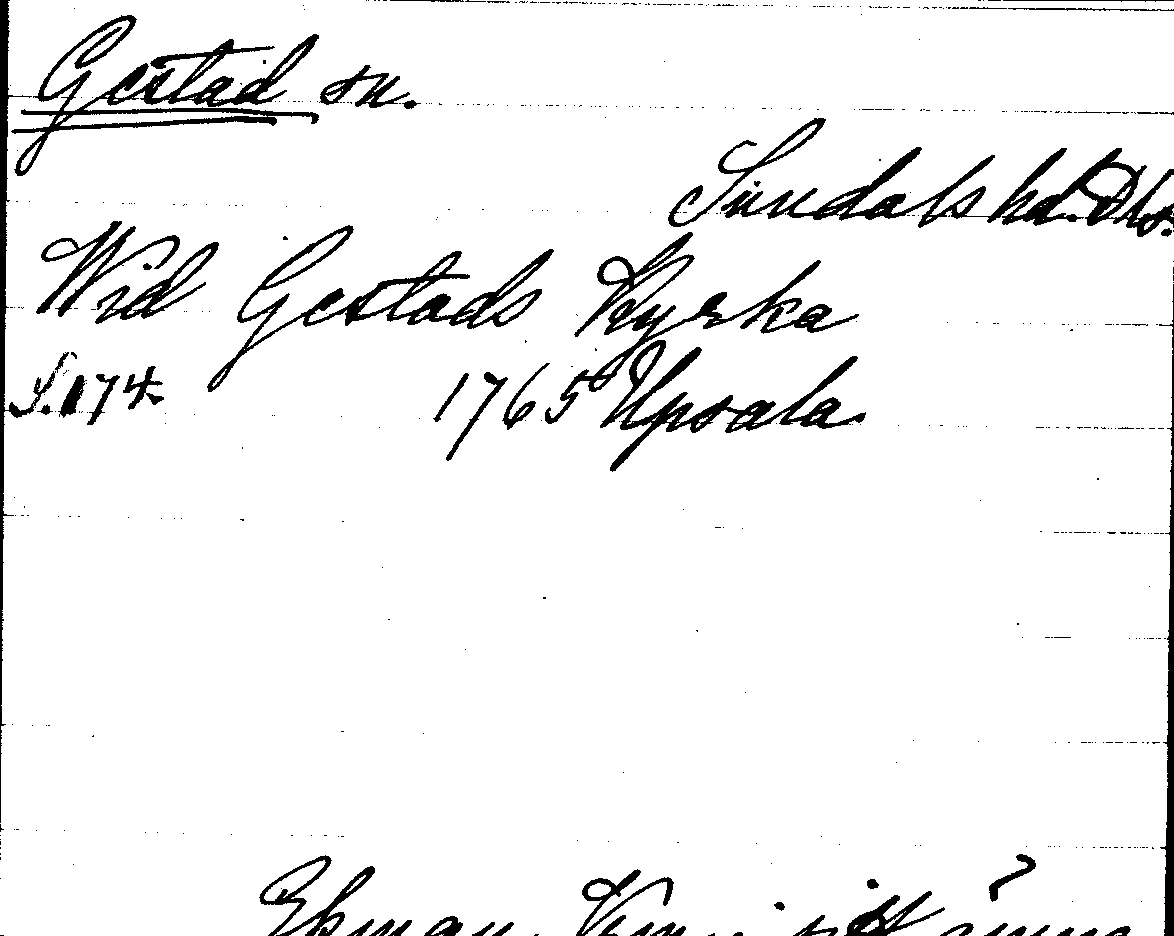 Gestad sn.
Sundals hd. Dls.
Wid Gestads Kyrka
S. 174. 1765 Upsala.
Ekman, i sitt